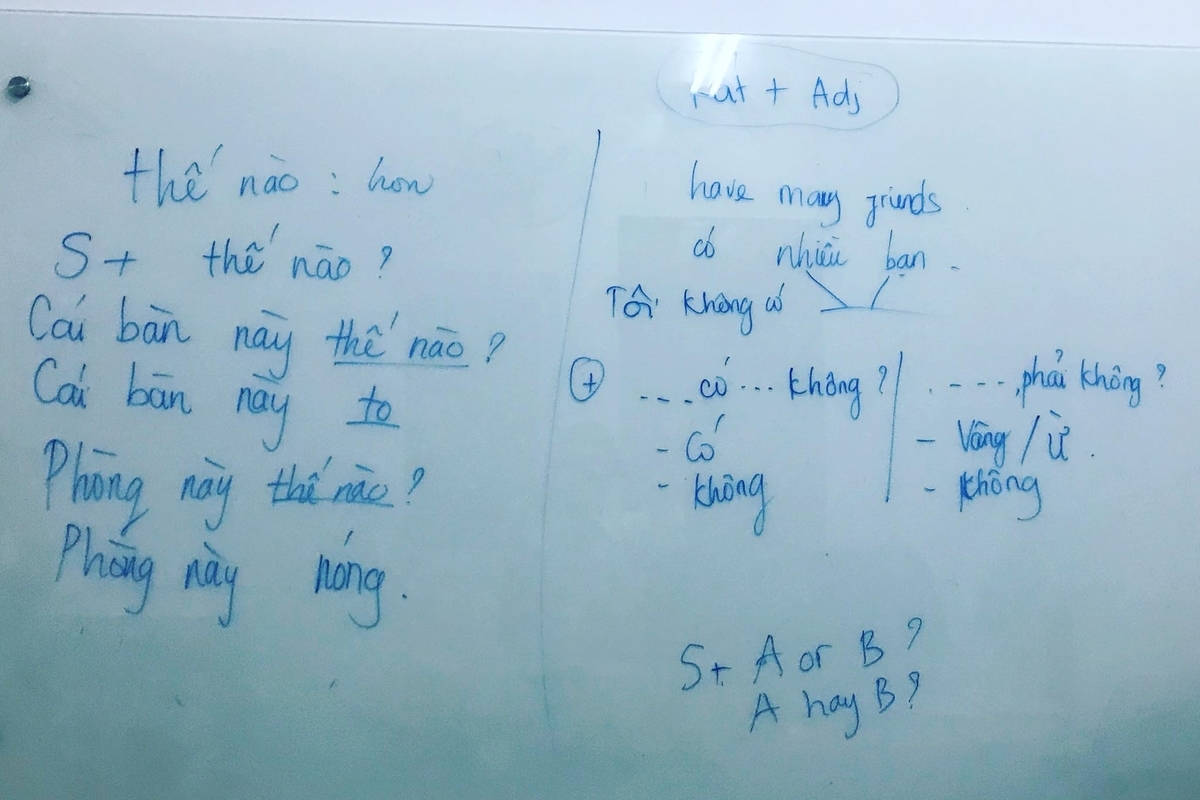 thế nào : how
S + thế nào ?
Cái bàn này thế nào ?
Cái bàn này to
Phòng này thế nào ?
Phòng này nóng .
Rất + Adj
have many friends
có nhiều bạn .
Tôi không có
+ ... có ... không ?
- Có
- không
.... phải không ?
- Vâng / Ừ .
- không
S + A or B ?
A hay B ?